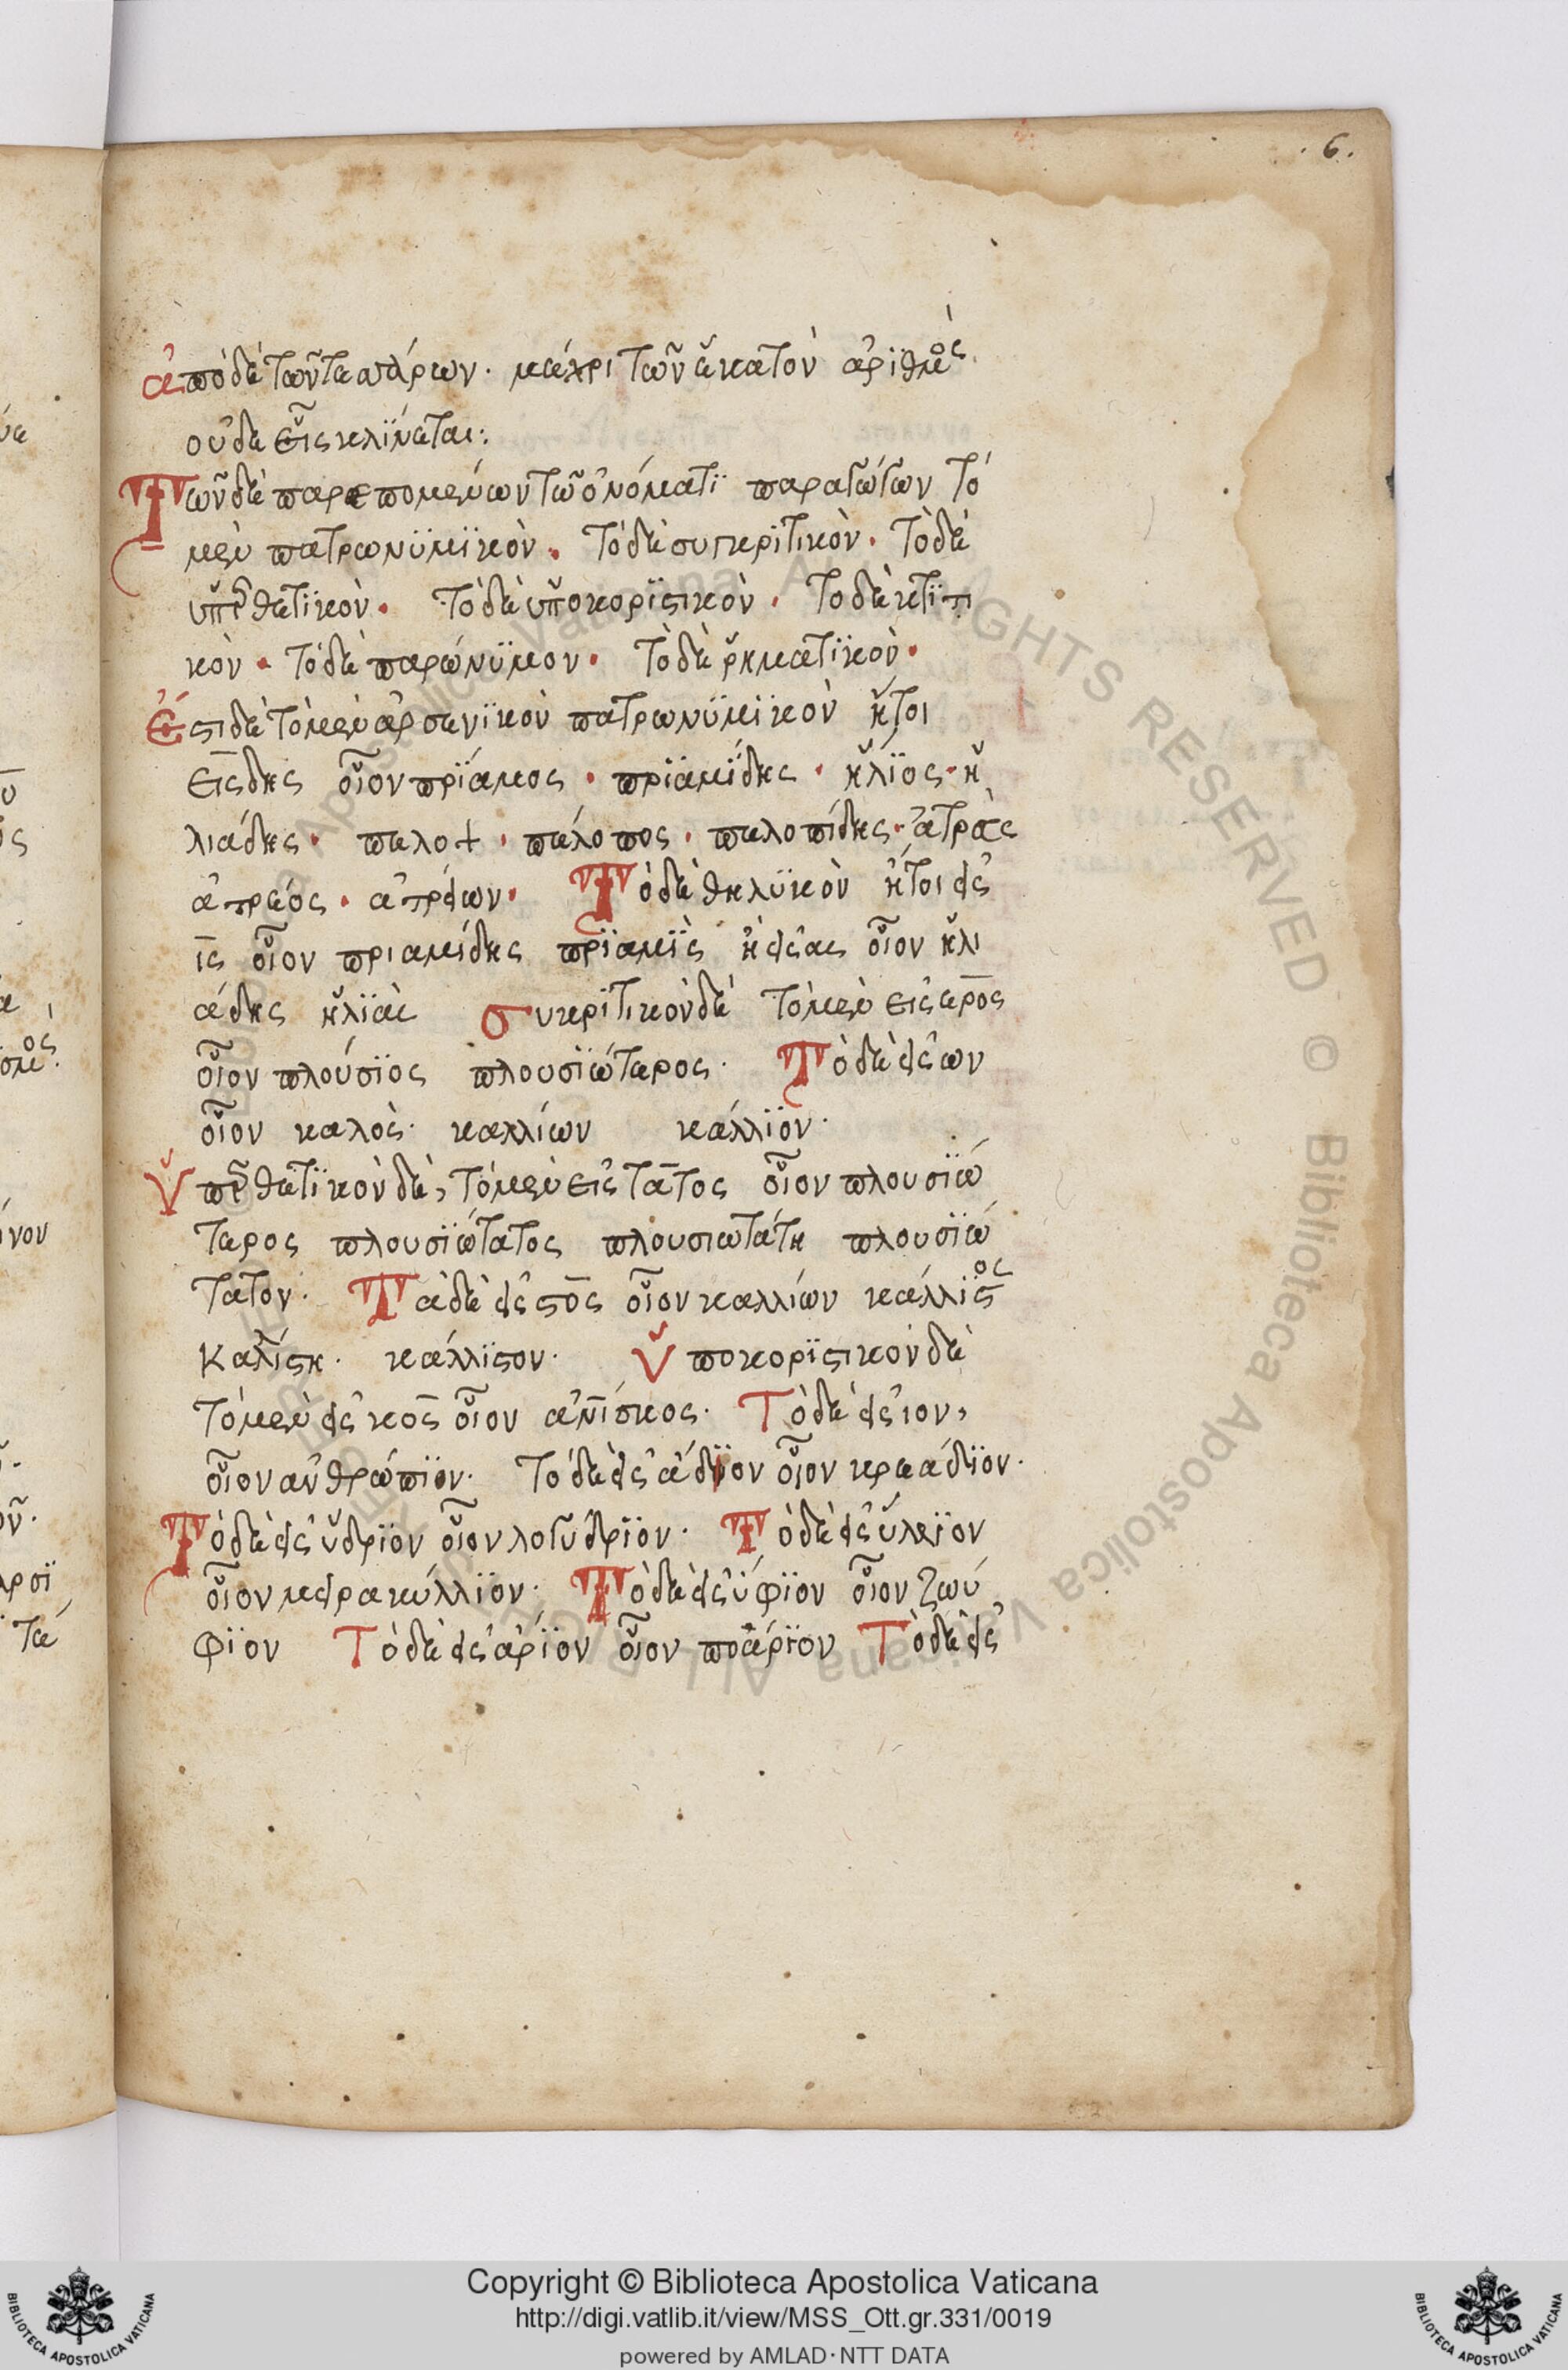 . 6 .
ἀπὸ δὲ τῶν τεσσάρων · μέχρι τῶν ἑκατὸν ἀριθμὸς
οὐδεῒς κλΐνεται :
Τῶν δὲ παρεπομένων τῶ ὀνόματϊ παραγώγων τὸ
μὲν πατρωνϋμϊκὸν · τὸ δὲ συγκρϊτικὸν · τὸ δὲ
ὑπερθετϊκὸν · τὸ δὲ ὑποκορϊστικὸν · το δὲ κτϊτι
κὸν · τὸ δὲ παρώνϋμον · τὸ δὲ ῥηματϊκὸν ·
ἔστι δὲ τὸ μὲν ἀρσενϊκὸν πατρωνϋμϊκὸν ἤτοι
εῒς δης οἷον πρϊάμος · πρϊαμίδης · ἥλϊος · ἡ
λιάδης · πελοψ · πέλοπος · πελοπίδης · ἀτρεὺς
ἀτρέος · ἀτρείων · Τὸ δὲ θηλϋκὸν ἤτοι εἰς
ῒς οἷον πριαμίδης πρϊαμῒς ἢ εἰς ας οἷον ἡλι
άδης ἡλϊὰς συκρϊτικὸν δὲ τὸ μὲν εἰς ερος
οἷον πλούσϊος πλουσϊώτερος · Τὸ δὲ εἰς ων
οἷον καλὸς · καλλίων κάλλϊον ·
Ὑπερθετϊκὸν δὲ, τὸ μὲν εἰς τατος οἷον πλουσϊώ
τερος πλουσϊώτατος πλουσιωτάτη πλουσϊώ
τατον · Τὰ δὲ εἰς στος οἷον καλλίων κάλλϊστος
καλίστη · κάλλϊστον · Ὑποκορϊστικὸν δὲ
τὸ μὲν εἰς κος οἷον ἀνίσκος · Τὸ δὲ εἰς ιον,
οἷον ἀνθρώπϊον · Το δὲ εἰς άδϊον οἷον κρεάδϊον ·
Τὸ δὲ εἰς ύδρϊον οἷον λογύδρϊον · Τὸ δὲ εἰς ύλλϊον
οἷον μειρακύλλϊον · Τὸ δὲ εἰς ύφϊον οἷον ζωύ
φϊον Τὸ δὲ εἰς άρϊον οἷον ποάρϊον Τὸ δὲ εἰς
Copyright © Biblioteca Apostolica Vaticana
http://digi.vatlib.it/view/MSS_Ott.gr.331/0019
powered by AMLAD·NTT DATA